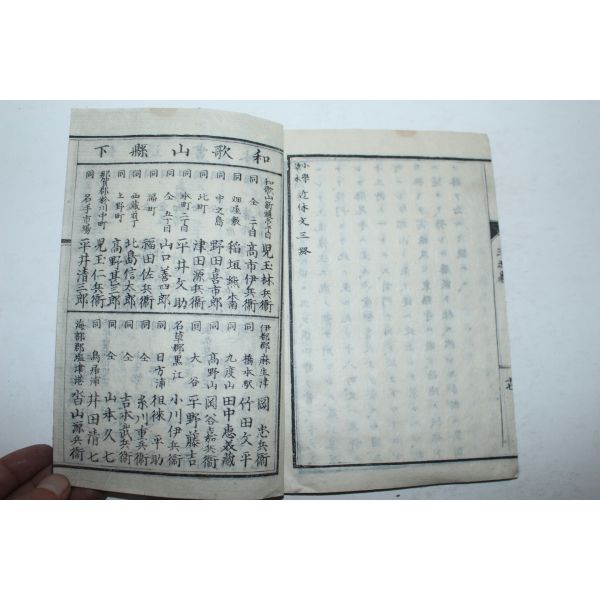 小學
讀本
近体文三終
和歌山縣下
和歌山新通壱丁目 児玉林兵衛
同 仝 二丁目 高市伊兵衛
同 畑屋敷 稲垣熊南
同 中之島 野田喜市郎
同 北町 津田源兵衛
同 本町二丁目 平井文助
同 仝 五丁目 山口善四郎
同 福町 福田佐兵衛
同 西蔵前丁 北島信太郎
同 上野町 高野甚三郎
那賀郡粉川中町 児玉仁兵衛
同 名手市場 平井清三郎
伊都郡麻生津 岡忠兵衛
同 橋本駅 竹田文平
同 九度山 田中恵蔵
同 高野山 岡谷嘉兵衛
同 大谷 平野藤吉
名草郡黒江 小川伊兵衛
同 日方浦 平助
同 仝 糸川重兵衛
同 仝 吉本武兵衛
同 仝 山本久七
同 鳥居浦 井田清七
海部郡塩津港 岩山源兵衛